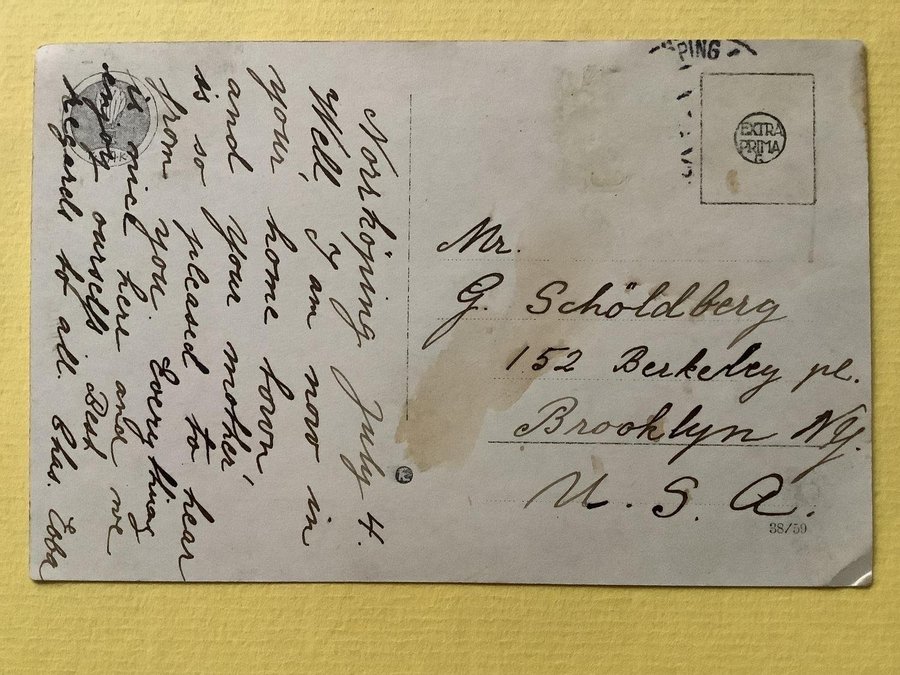 Norrköping July 4.
Well, I am now in
your home town,
and your mother
is so pleased to hear
from you. Everything
is nice here and we
enjoy ourselfs Best
regards to all. Chas.
PING
EXTRA
PRIMA
G
Mr.
G. Schöldberg
152 Berkeley pl.
Brooklyn NY.
U. S. A.
38/59